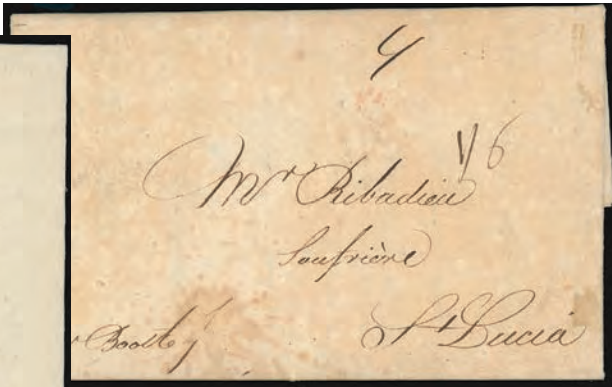 4
1/6
Mr Ribadieu
Soufrière
St Lucia